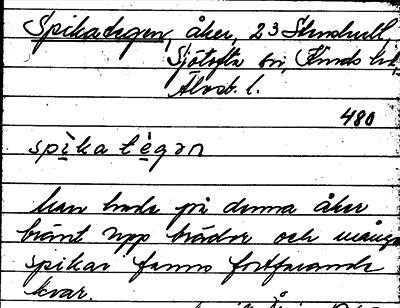 Spikadegen, åker, 23 Stenhult,
Sjötofta sn, Kinds hd,
Älvsb. l.
480
spikategən
han hade på denna åker
bränt upp brädor och många
spikar fanns fortfarande
kvar.